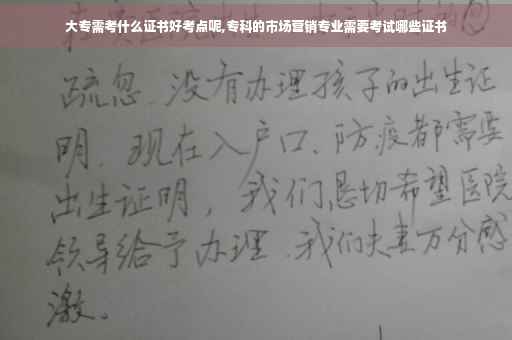 大专需考什么证书好考点呢,专科的市场营销专业需要考试哪些证书
疏忽、没有办理孩子的出生证
明、现在入户口、防疫都需要
出生证明，我们恳切希望医院
领导给予办理、我们夫妻万分感
激。